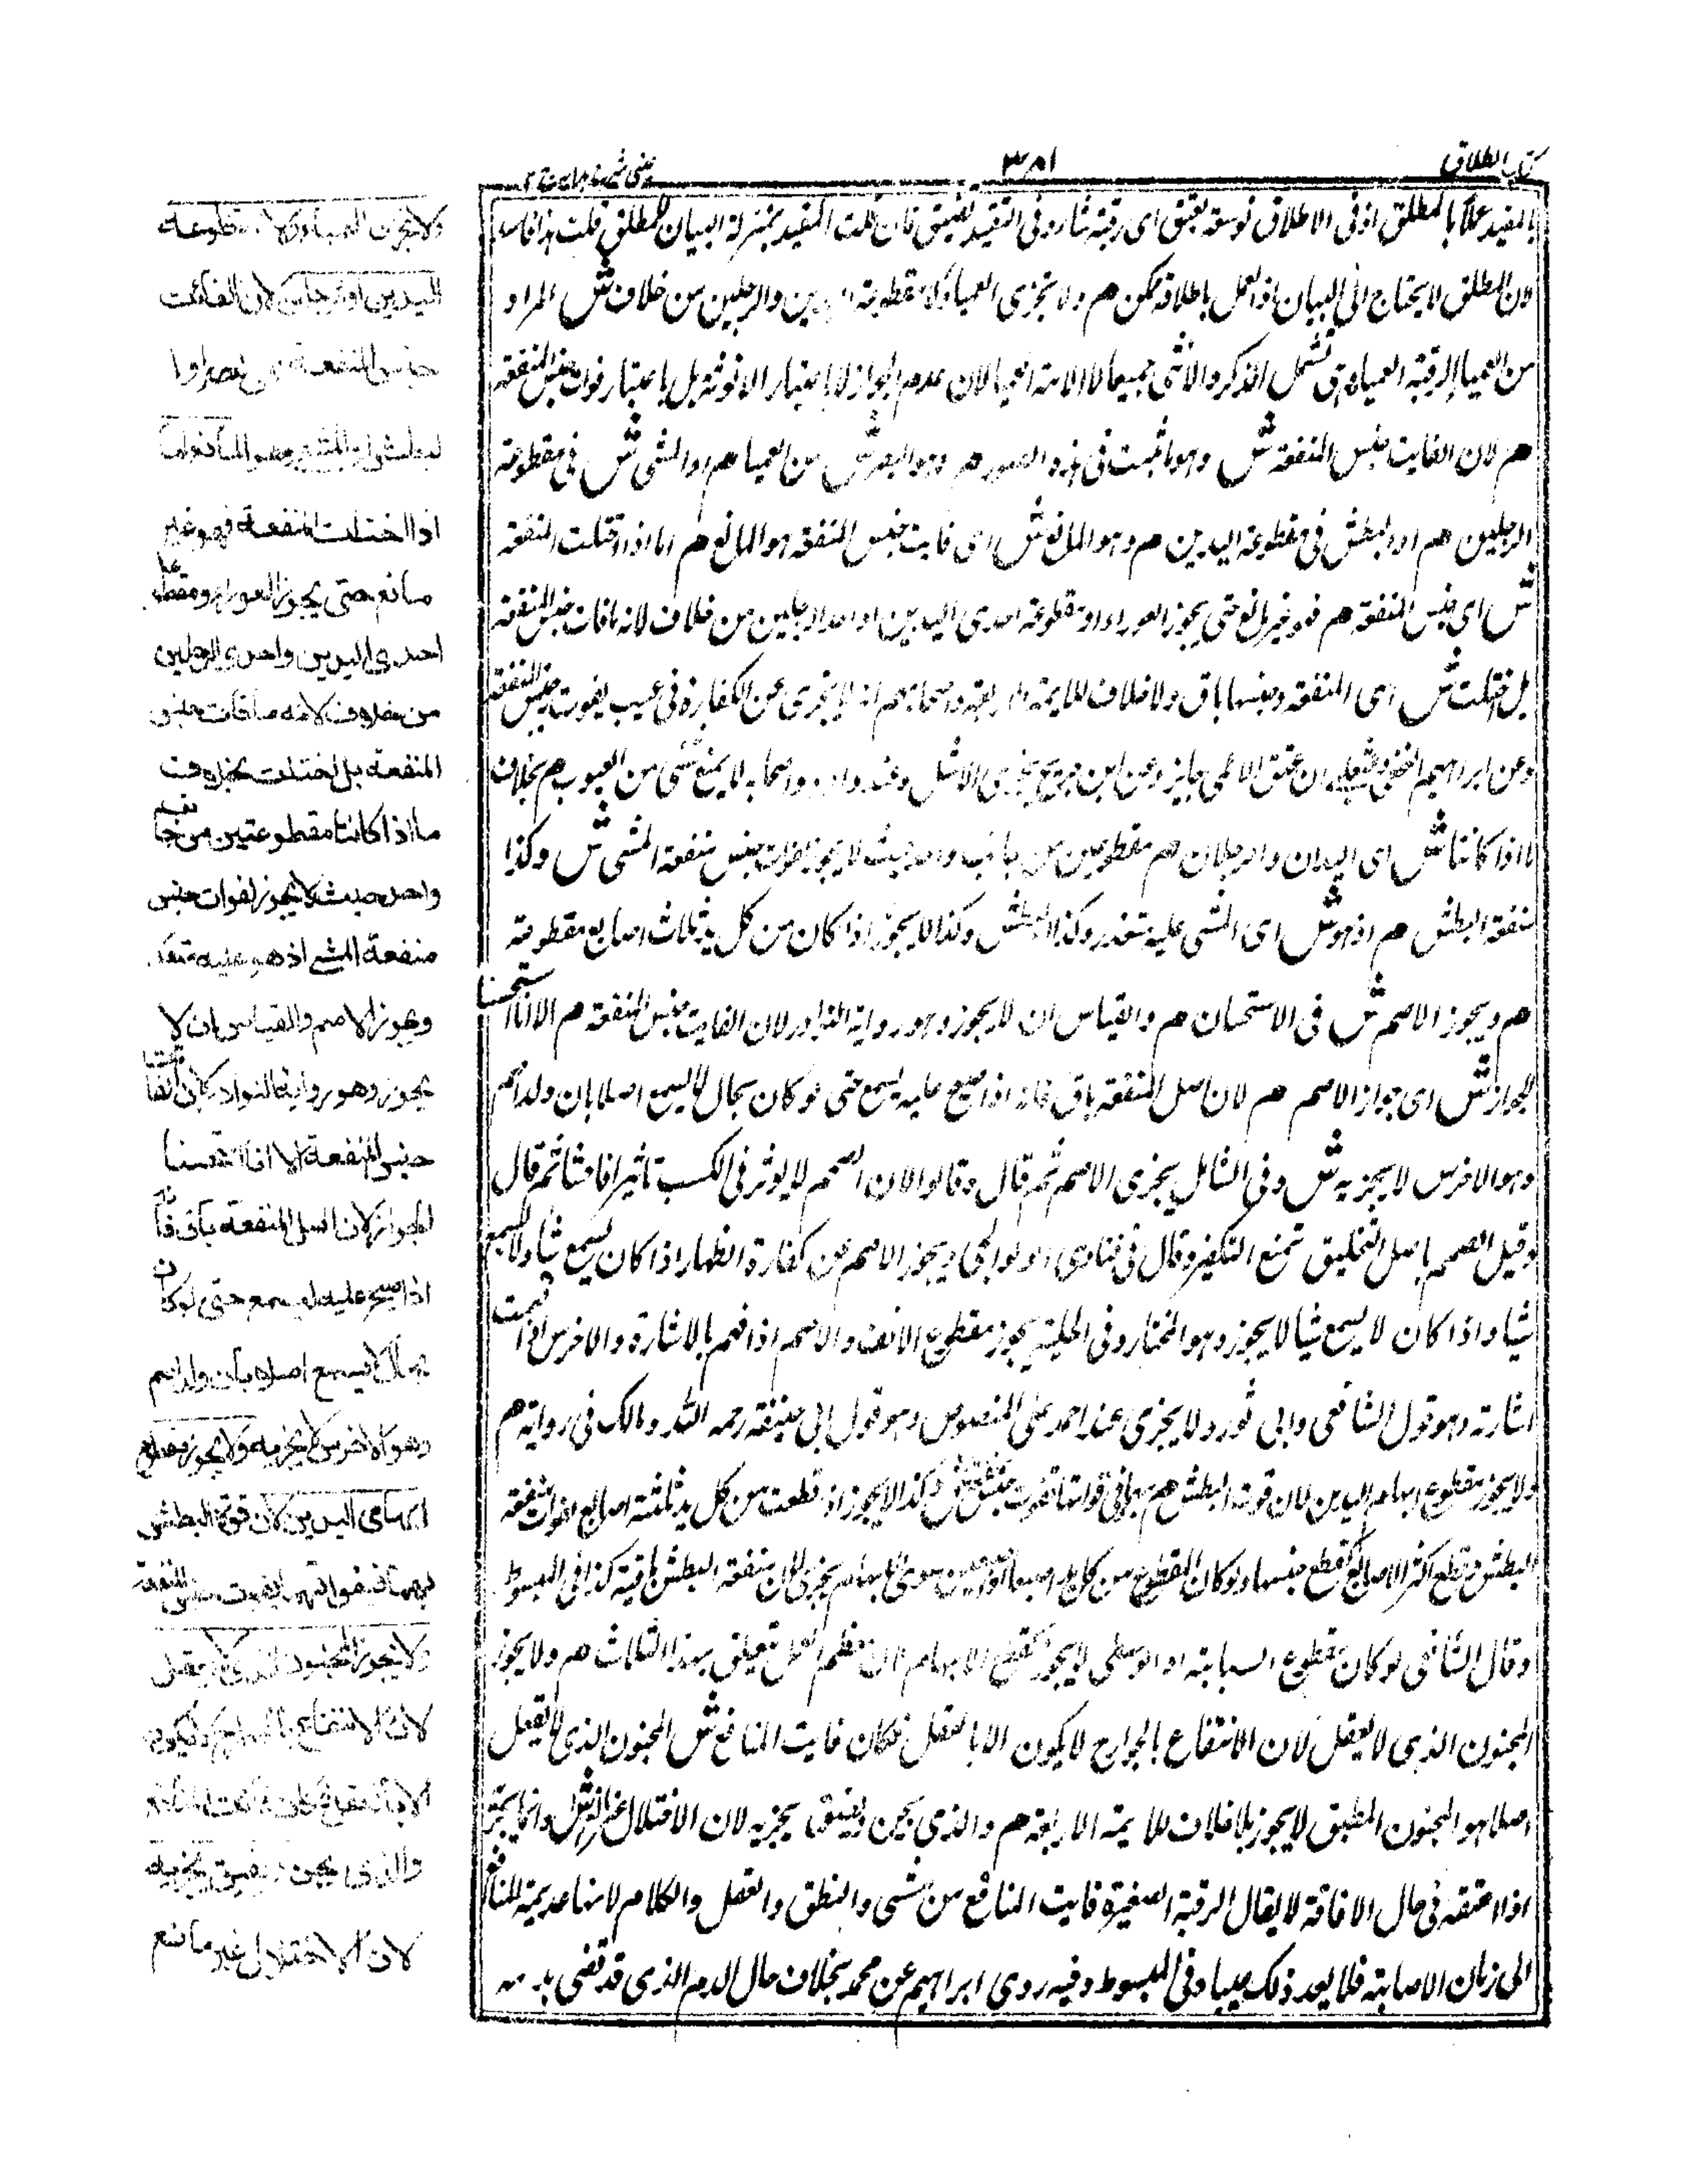 كتاب الطلاق
٣٨١
عينى شرح هداية ج ٢
بالمقيد عملا بالمطلق اذ فى الاطلاق توسعة بعتق اى رقبة شاء وفى التقييد تضييق فان قلت المقيد بمنزلة البيان للمطلق قلت هذا فاسد
لان المطلق لا يحتاج الى البيان اذ العمل باطلاقه ممكن هم ولا تجزى العمياء ولا مقطوعة اليدين والرجلين من خلاف ش المراد
من العمياء الرقبة العمياء حتى تشمل الذكر والانثى جميعا لا الامة العمياء لان عدم الجواز لا باعتبار الانوثة بل باعتبار فوات جنس المنفعة
هم لان الفايت جنس المنفعة ش وهو اثبت فى هذه الصور هم وهو البصر ش من العمياء هم او المشى ش فى مقطوعة
الرجلين هم او البطش فى مقطوعة اليدين هم وهو المانع ش اى فايت جنس المنفعة هو المانع هم اما اذا اختلت المنفعة
ش اى جنس المنفعة هم فهو غير مانع حتى يجوز العوراء او مقطوعة احدى اليدين او احد الرجلين من خلاف لانه ما فات جنس المنفعة
بل اختلت ش اى المنفعة وجنسها باق ولا خلاف للايمة الاربعة واصحابهم انه لا يجزى عن الكفارة فى عيب يفوت جنس المنفعة
وعن ابراهيم النخعى ان عتق الاعمى جايز وعن ابن جريج يجزى الاشل وعند داود واصحابه لا يمنع شئ من العيوب هم بخلاف
ما اذا كانتا ش اى اليدان والرجلان هم مقطوعتين من جانب واحد حيث لا يجوز لفوات جنس منفعة المشى ش وكذا
منفعة البطش هم اذ هو ش اى المشى عليه متعذر وكذا البطش وكذا لا يجوز اذا كان من كل يد ثلاث اصابع مقطوعة
هم ويجوز الاصم ش فى الاستحسان هم والقياس ان لا يجوز وهو رواية النوادر لان الفايت جنس المنفعة هم الا انا استحسنا
الجواز ش اى جواز الاصم هم لان اصل المنفعة باق فانه اذا صيح عليه يسمع حتى لو كان بحال لا يسمع اصلا بان ولد اصم
وهو الاخرس لا يجزيه ش وفى الشامل يجزى الاصم ثم قال وقالوا لان الصمم لا يوثر فى الكسب تاثيرا فاحشا ثم قال
وقيل الصمم باصل التخليق تمنع التكفير وقال فى فتاوى الولوالجى ويجوز الاصم عن كفارة الظهار اذا كان يسمع شيا ولا يسمع
شيا واذا كان لا يسمع شيا لا يجوز وهو المختار وفى الحلية يجوز مقطوع الانف والاصم اذا فهم بالاشارة والاخرس اذا فهمت
اشارته وهو قول الشافعى وابى ثور ولا يجزى عند احمد على المنصوص وهو قول ابى حنيفة رحمه الله ومالك فى رواية هم
ولا يجوز مقطوع ابهام اليدين لان قوة البطش هم بهما فبفواتهما تفوت جنس المنفعة ش وكذا لا يجوز اذ قطعت من كل يد ثلثة اصابع لفوات منفعة
البطش وقطع اكثر الاصابع كقطع جنسها ولو كان المقطوع من كل يد اصبعا او اصبعين سوى الابهام يجزى لان منفعة البطش باقية كذا فى المبسوط
وقال الشافعى لو كان مقطوع السبابة او الوسطى لا يجوز كقطع الابهام لان معظم العمل يتعلق بهذا الثلاث هم ولا يجوز
المجنون الذى لا يعقل لان الانتفاع بالجوارح لا يكون الا بالعقل فكان فايت المنافع ش المجنون الذى لا يعقل
اصلا هو المجنون المطبق لا يجوز بلا خلاف للايمة الاربعة هم والذى يجن ويفيق يجزيه لان الاختلال غير مانع ش وانما يجزيه
اذا اعتقه فى حال الافاقة لا يقال الرقبة الصغيرة فايت المنافع من مشى والنطق والعقل والكلام لانها عديمة المنافع
الى زمان الاصابة فلا يعد ذلك عيبا وفى المبسوط وفيه روى ابراهيم عن محمد بخلاف حال الدم الذى قد قضى بدمه
ولا تجزى العمياء ولا مقطوعة
اليدين او الرجلين لان الفائت
جنس المنفعة وهى البصر او
البطش او المشى وهو المانع اما
اذا اختلت المنفعة فهو غير
مانع حتى يجوز العوراء ومقطوعة
احدى اليدين واحدى الرجلين
من خلاف لانه ما فات جنس
المنفعة بل اختلت بخلاف
ما اذا كانتا مقطوعتين من جانب
واحد حيث لا يجوز لفوات جنس
منفعة المشى اذ هو عليه متعذر
ويجوز الاصم والقياس ان لا
يجوز وهو رواية النوادر لان الفائت
جنس المنفعة الا انا استحسنا
الجواز لان اصل المنفعة باق فانه
اذا صيح عليه يسمع حتى لو كان
بحال لا يسمع اصلا بان ولد اصم
وهو الاخرس لا يجزيه ولا يجوز مقطوع
ابهامى اليدين لان قوة البطش
بهما فبفواتهما يفوت جنس المنفعة
ولا يجوز المجنون الذى لا يعقل
لان الانتفاع بالجوارح لا يكون
الا بالعقل فكان فائت المنافع
والذى يجن ويفيق يجزيه
لان الاختلال غير مانع